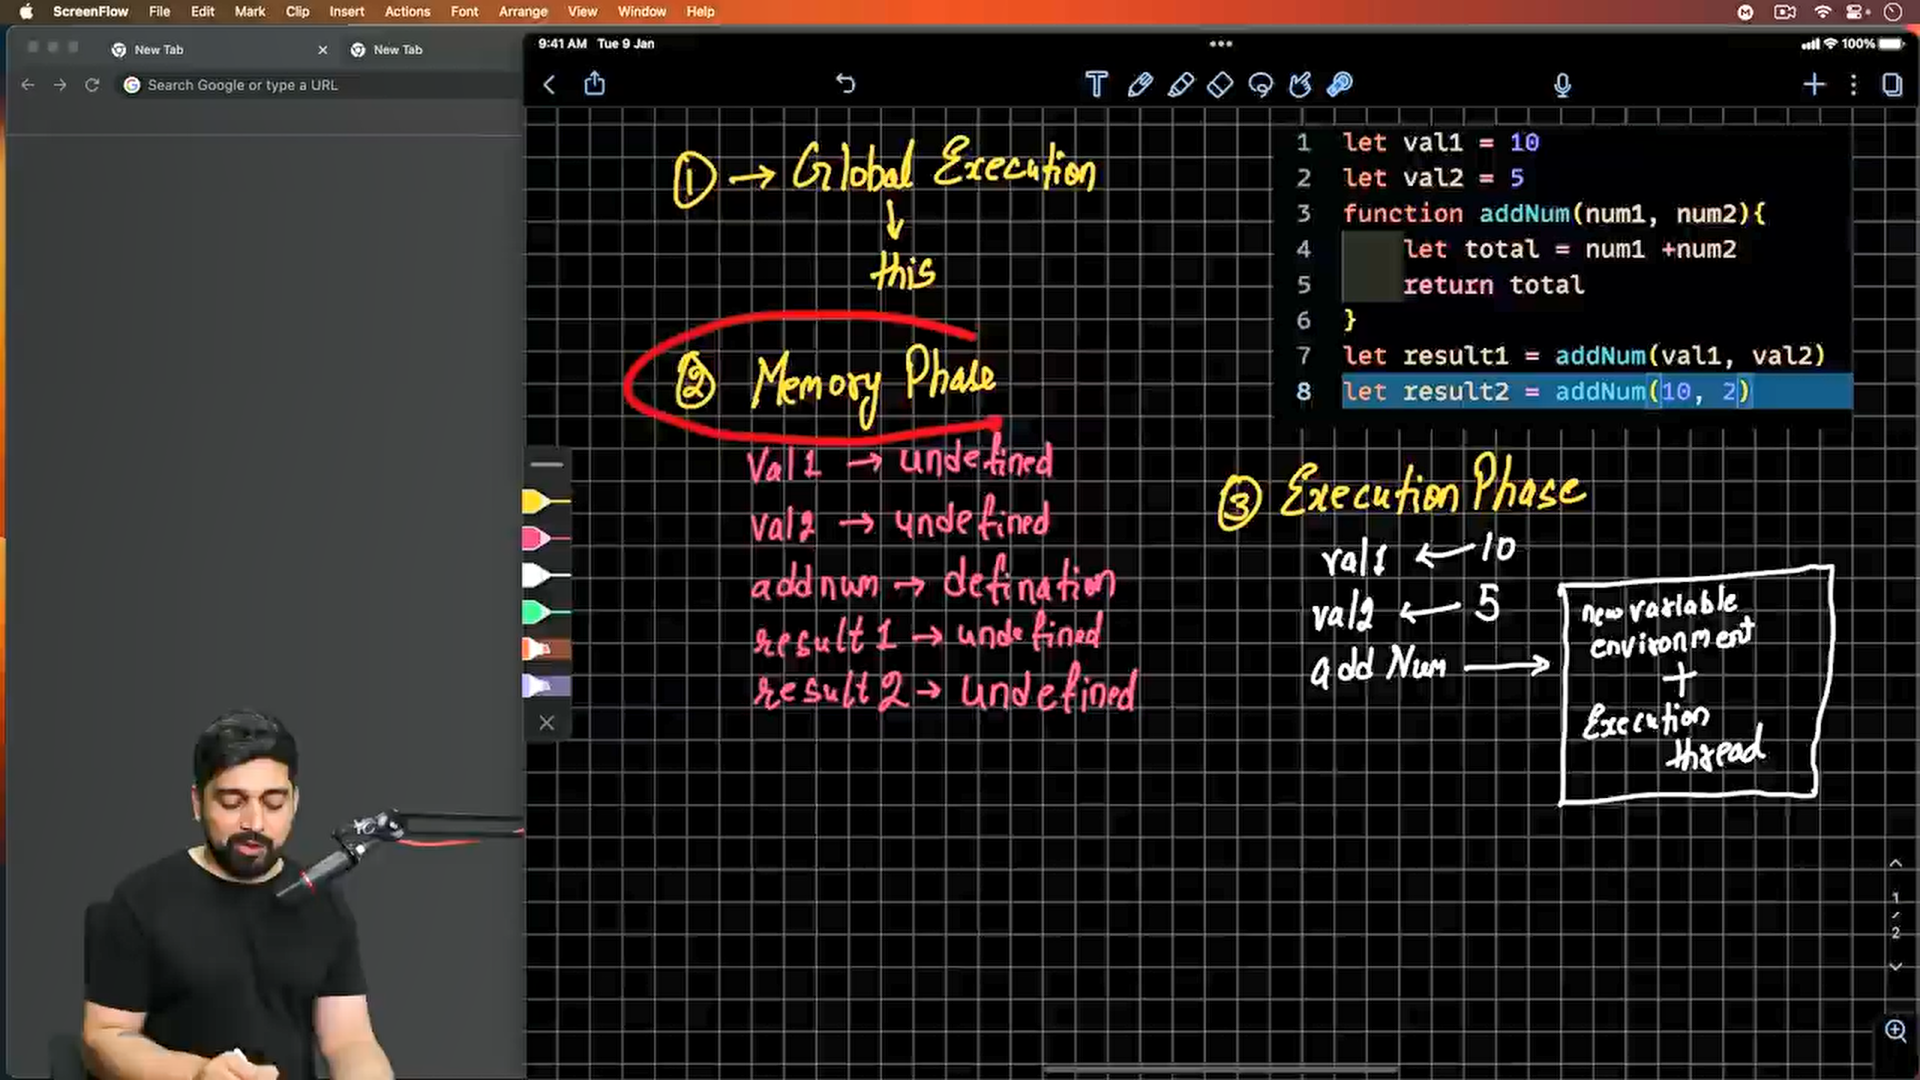 ScreenFlow File Edit Mark Clip Insert Actions Font Arrange View Window Help
New Tab
New Tab
Search Google or type a URL
9:41 AM Tue 9 Jan
100%
① → Global Execution
↓
this
② Memory Phase
Val1 → undefined
val2 → undefined
addnum → defination
result1 → undefined
result2 → undefined
1 let val1 = 10
2 let val2 = 5
3 function addNum(num1, num2){
4 let total = num1 +num2
5 return total
6 }
7 let result1 = addNum(val1, val2)
8 let result2 = addNum(10, 2)
③ Execution Phase
val1 ← 10
val2 ← 5
add Num →
new variable
environment
+
Execution
thread
1
/
2